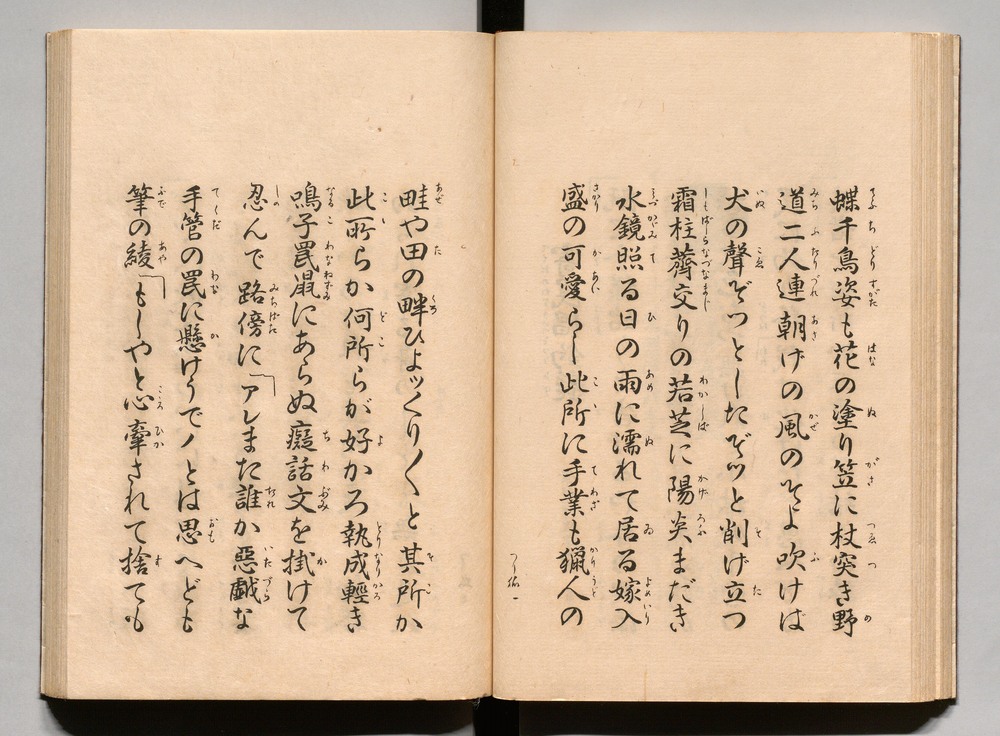 蝶千鳥姿も花の塗り笠に杖突き野
道二人連朝げの風のそよ吹けば
犬の聲ぞつとしたぞッと削げ立つ
霜柱薺交りの若芝に陽炎まだき
水鏡照る日の雨に濡れて居る嫁入
盛の可愛らし此所に手業も獵人の
畦や田の畔ひよッくり〱と其所か
此所らか何所らが好かろ執成輕き
鳴子罠鼠にあらぬ癡話文を掛けて
忍んで路傍に「アレまた誰か惡戯な
手管の罠に懸けうでノとは思へども
筆の綾「もしやと心牽されて捨ても